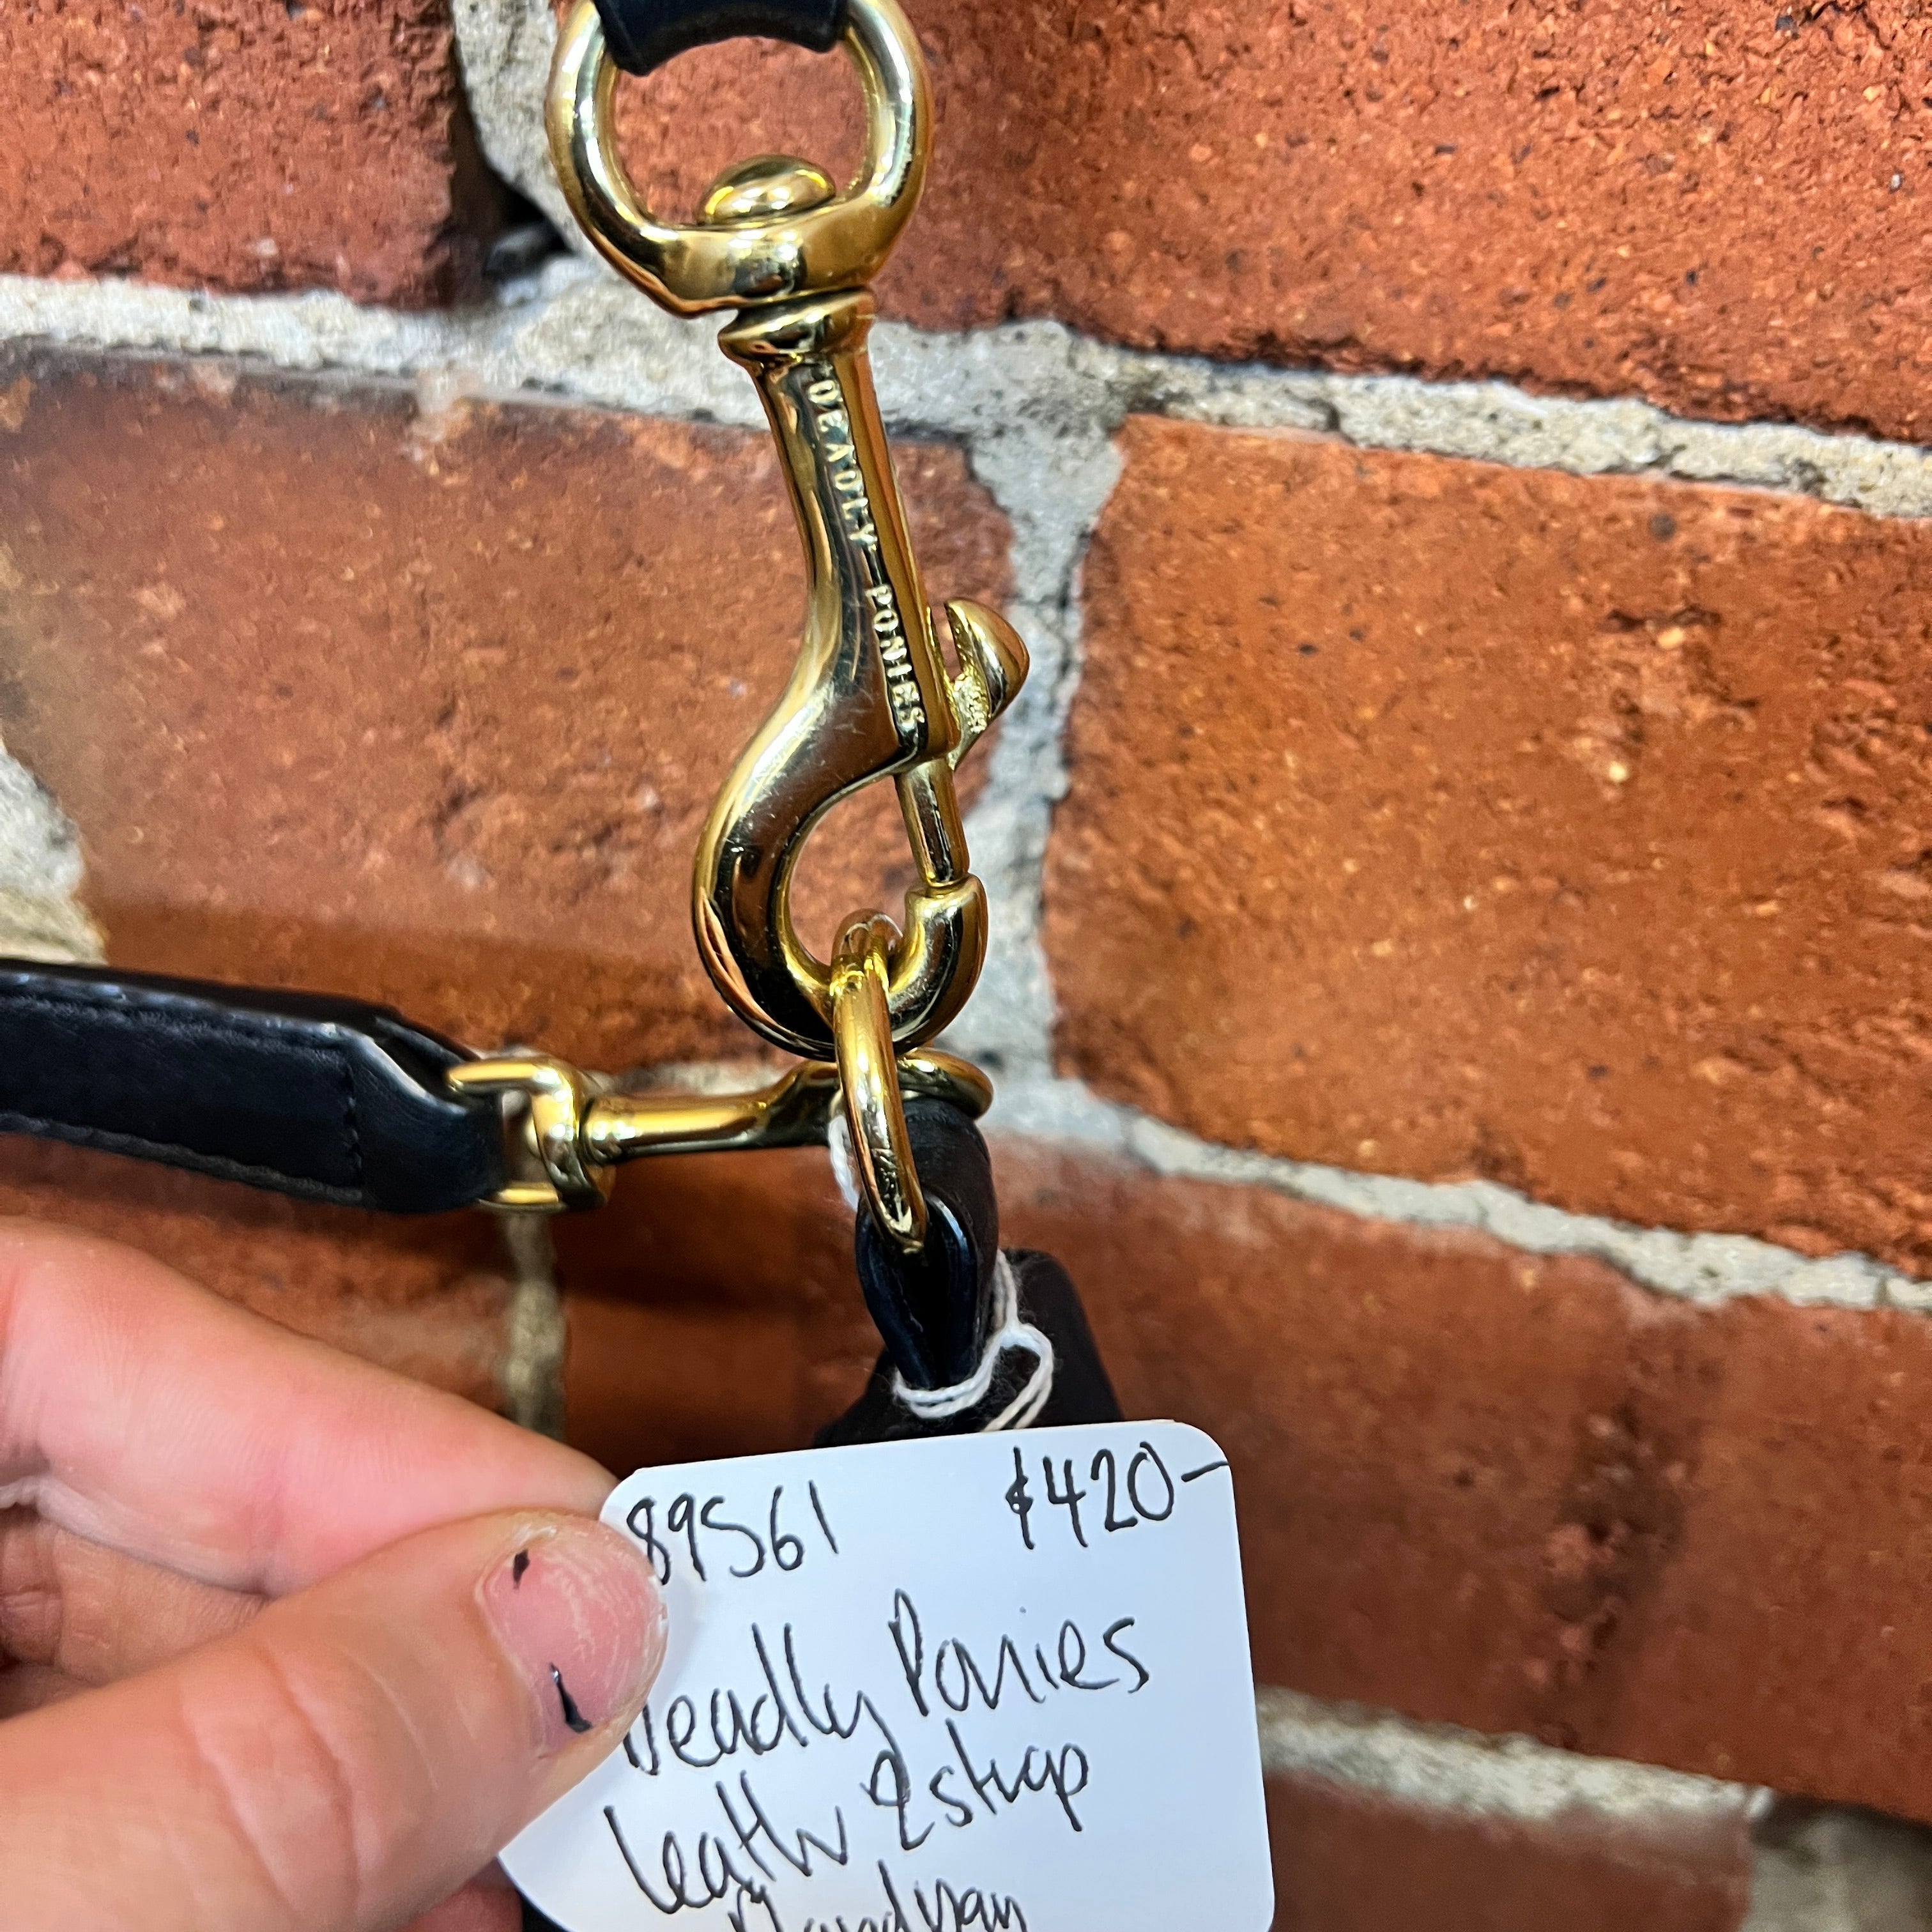 DEADLY PONIES
89561 $420-
Deadly Ponies
Leathr 2 strap